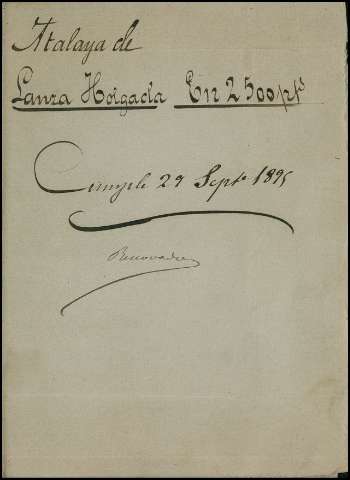 Atalaya de
Lanza Holgada En 2500 pts
Cumple 29 Septe 1895
Renovada